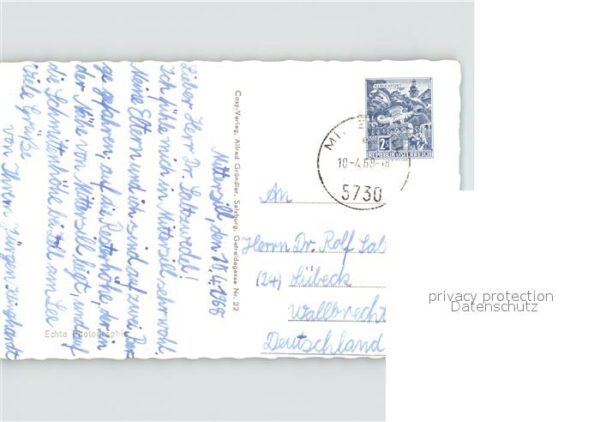 Mittersil, den 10.4.1968
Lieber Herr Dr.
Ich fühle mich in Mitersil sehr wohl.
Meine Eltern und ich sind auf zwei Ber-
ge gefahren; auf die Resterhöhe, der in
der Nähe von Mittersill liegt, und auf
die Schmittenhöhe bei Zell am See.
Viele Grüße
von Ihrem Jürgen
Echte Photographie
Cosy-Verlag, Alfred Gründler, Salzburg, Getreidegasse Nr. 22
2
REPUBLIK ÖSTERREICH
10-4.68-18
5730
An
Herrn Dr. Rolf Sal
(24) Lübeck
Wallbrecht
Deutschland
privacy protection
Datenschutz